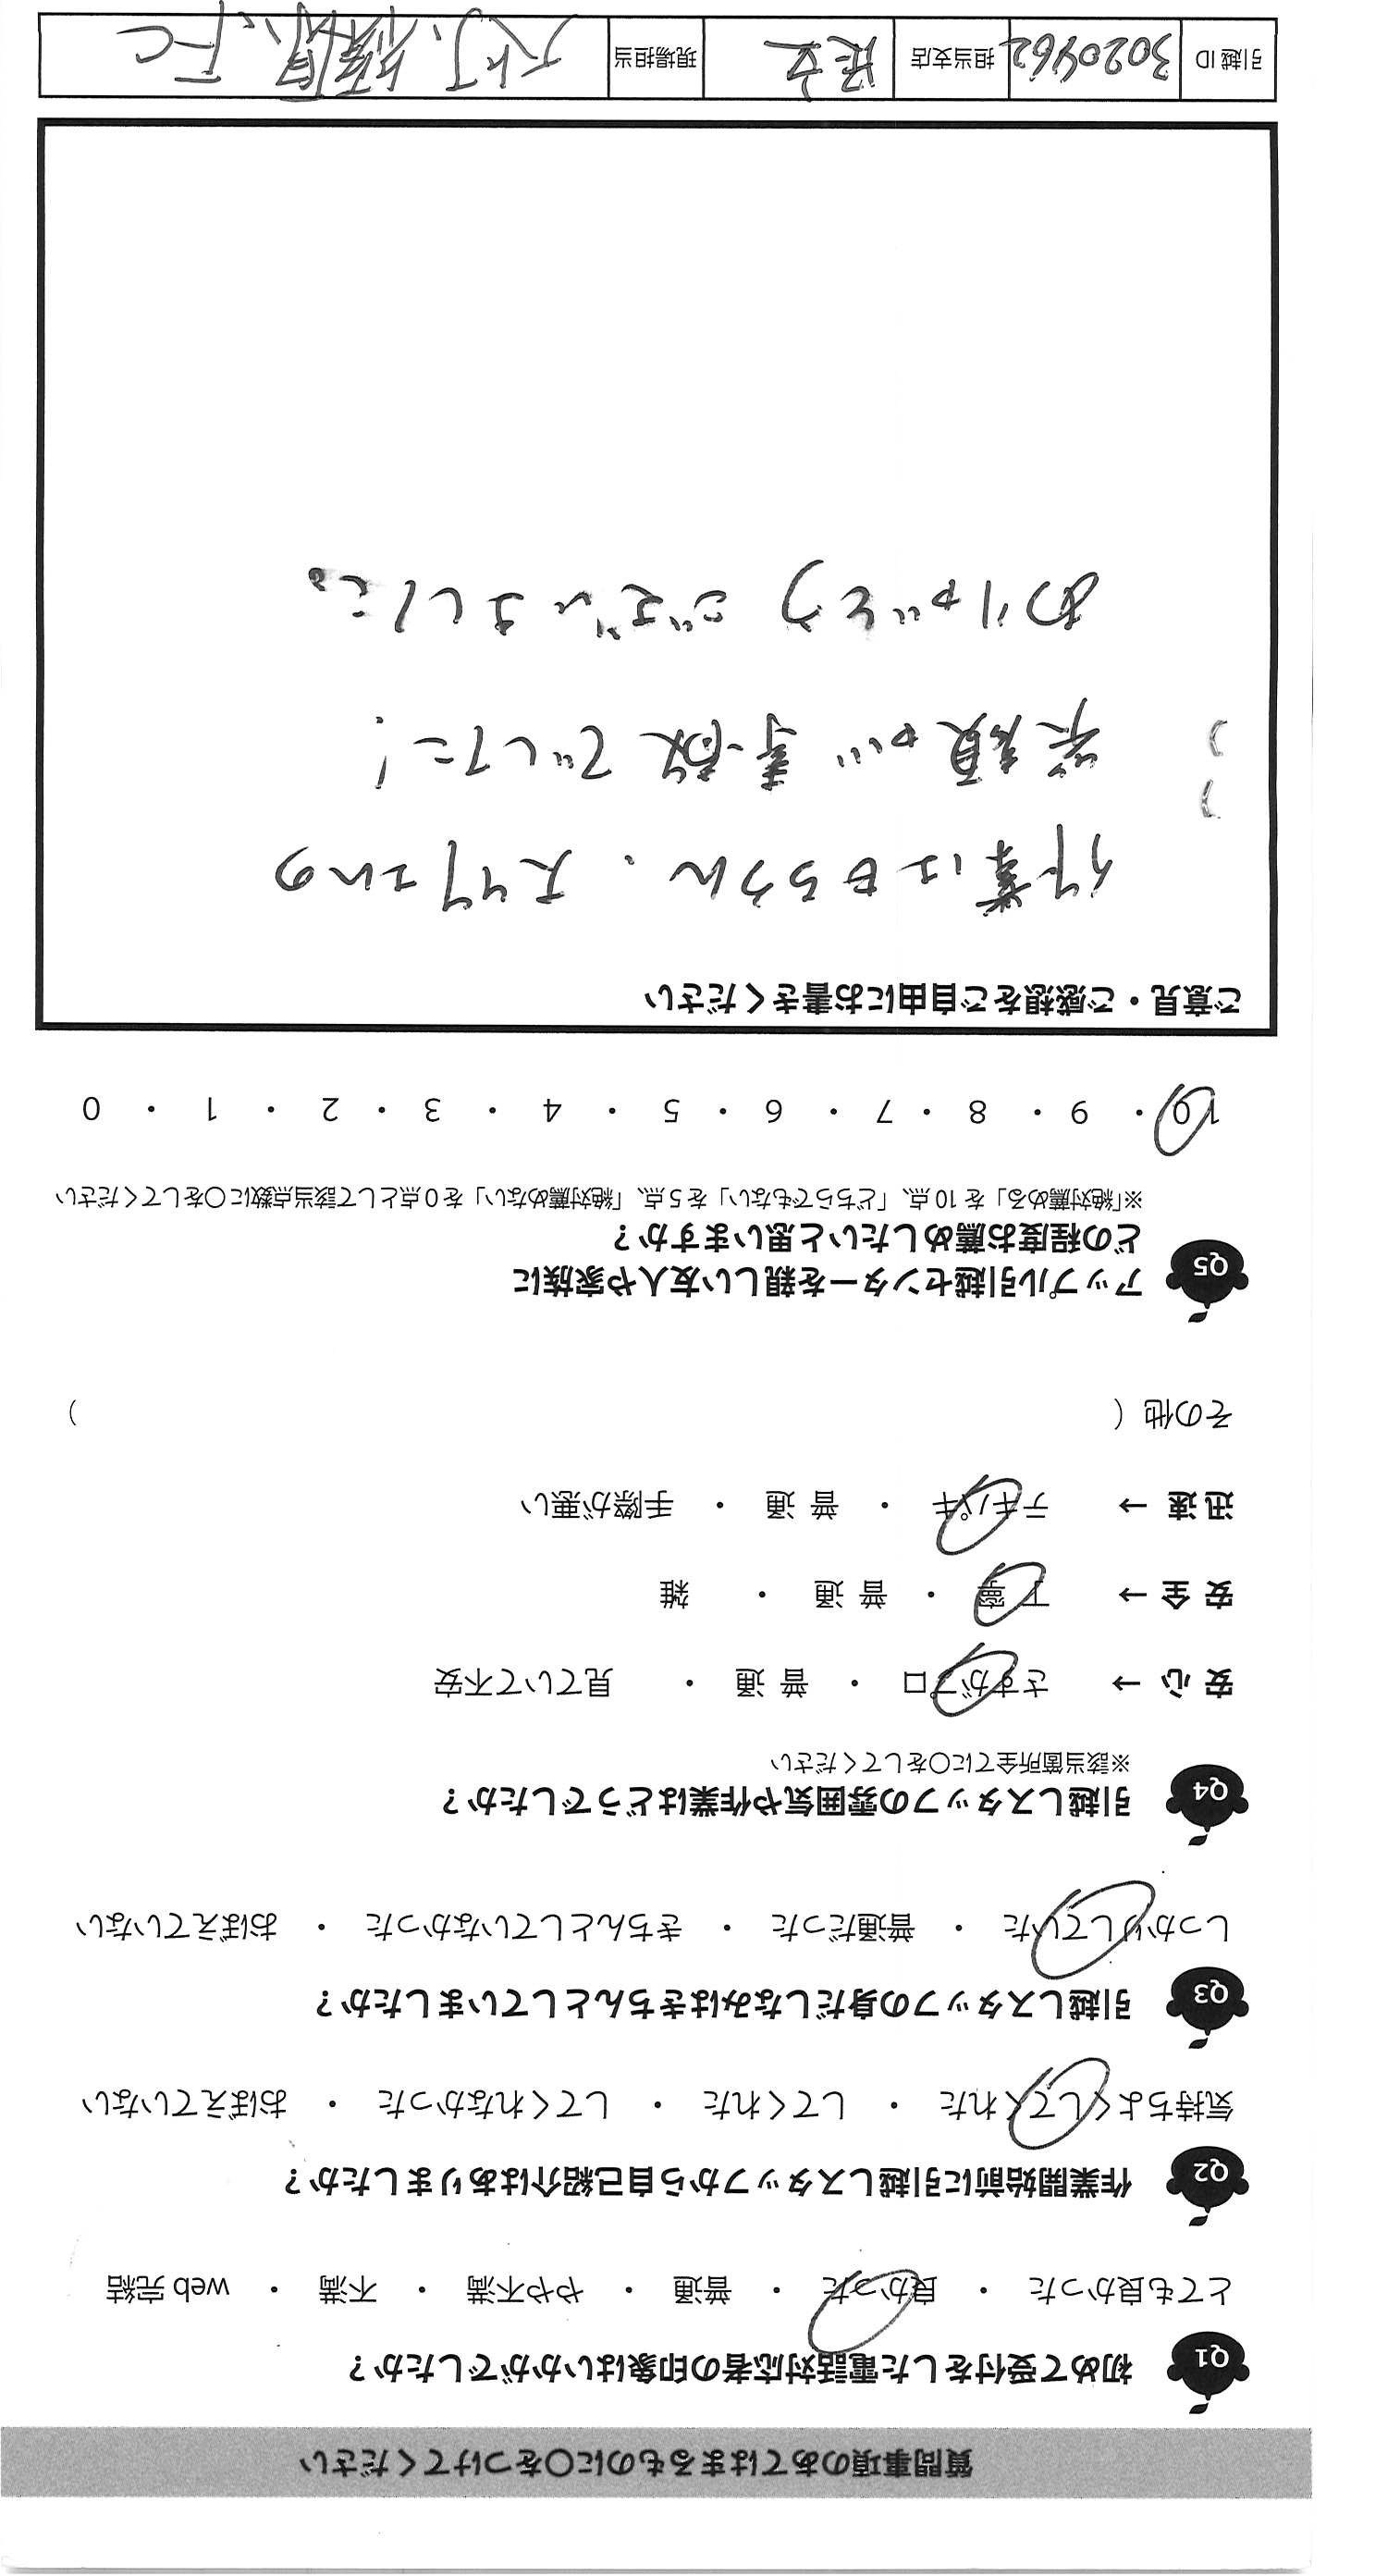 質問事項のあてはまるものに○をつけてください
Q1 初めて受付をした電話対応者の印象はいかがでしたか？
とても良かった ・ 良かった ・ 普通 ・ やや不満 ・ 不満 ・ web 完結
Q2 作業開始前に引越しスタッフから自己紹介はありましたか？
気持ちよくしてくれた ・ してくれた ・ してくれなかった ・ おぼえていない
Q3 引越しスタッフの身だしなみはきちんとしていましたか？
しっかりしていた ・ 普通だった ・ きちんとしていなかった ・ おぼえていない
Q4 引越しスタッフの雰囲気や作業はどうでしたか？
※該当箇所全てに○をしてください
安心 → さすがプロ ・ 普通 ・ 見ていて不安
安全 → 丁寧 ・ 普通 ・ 雑
迅速 → テキパキ ・ 普通 ・ 手際が悪い
その他（ ）
Q5 アップル引越センターを親しい友人や家族に
どの程度お薦めしたいと思いますか？
※「絶対薦める」を 10 点、「どちらでもない」を 5 点、「絶対薦めない」を 0 点として該当点数に○をしてください
10 ・ 9 ・ 8 ・ 7 ・ 6 ・ 5 ・ 4 ・ 3 ・ 2 ・ 1 ・ 0
ご意見・ご感想をご自由にお書きください
作業はもちろん、スタッフの
笑顔が素敵でした！
ありがとうございました。
引越 ID 3020462 担当支店 足立 現場担当